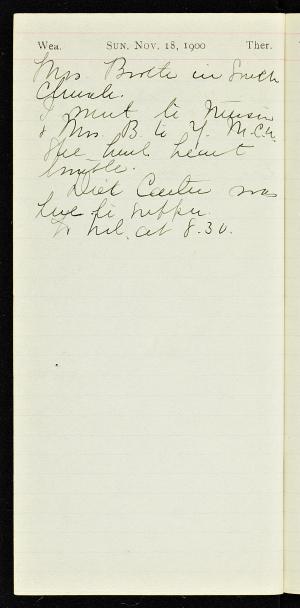 Wea. SUN. NOV. 18, 1900 Ther.
Mrs. Booth in South
Church.
I went to
& Mrs. B. to Y. M.C.A.
She had heart
trouble.
Dick Carter was
here to supper.
To bed at 8.30.